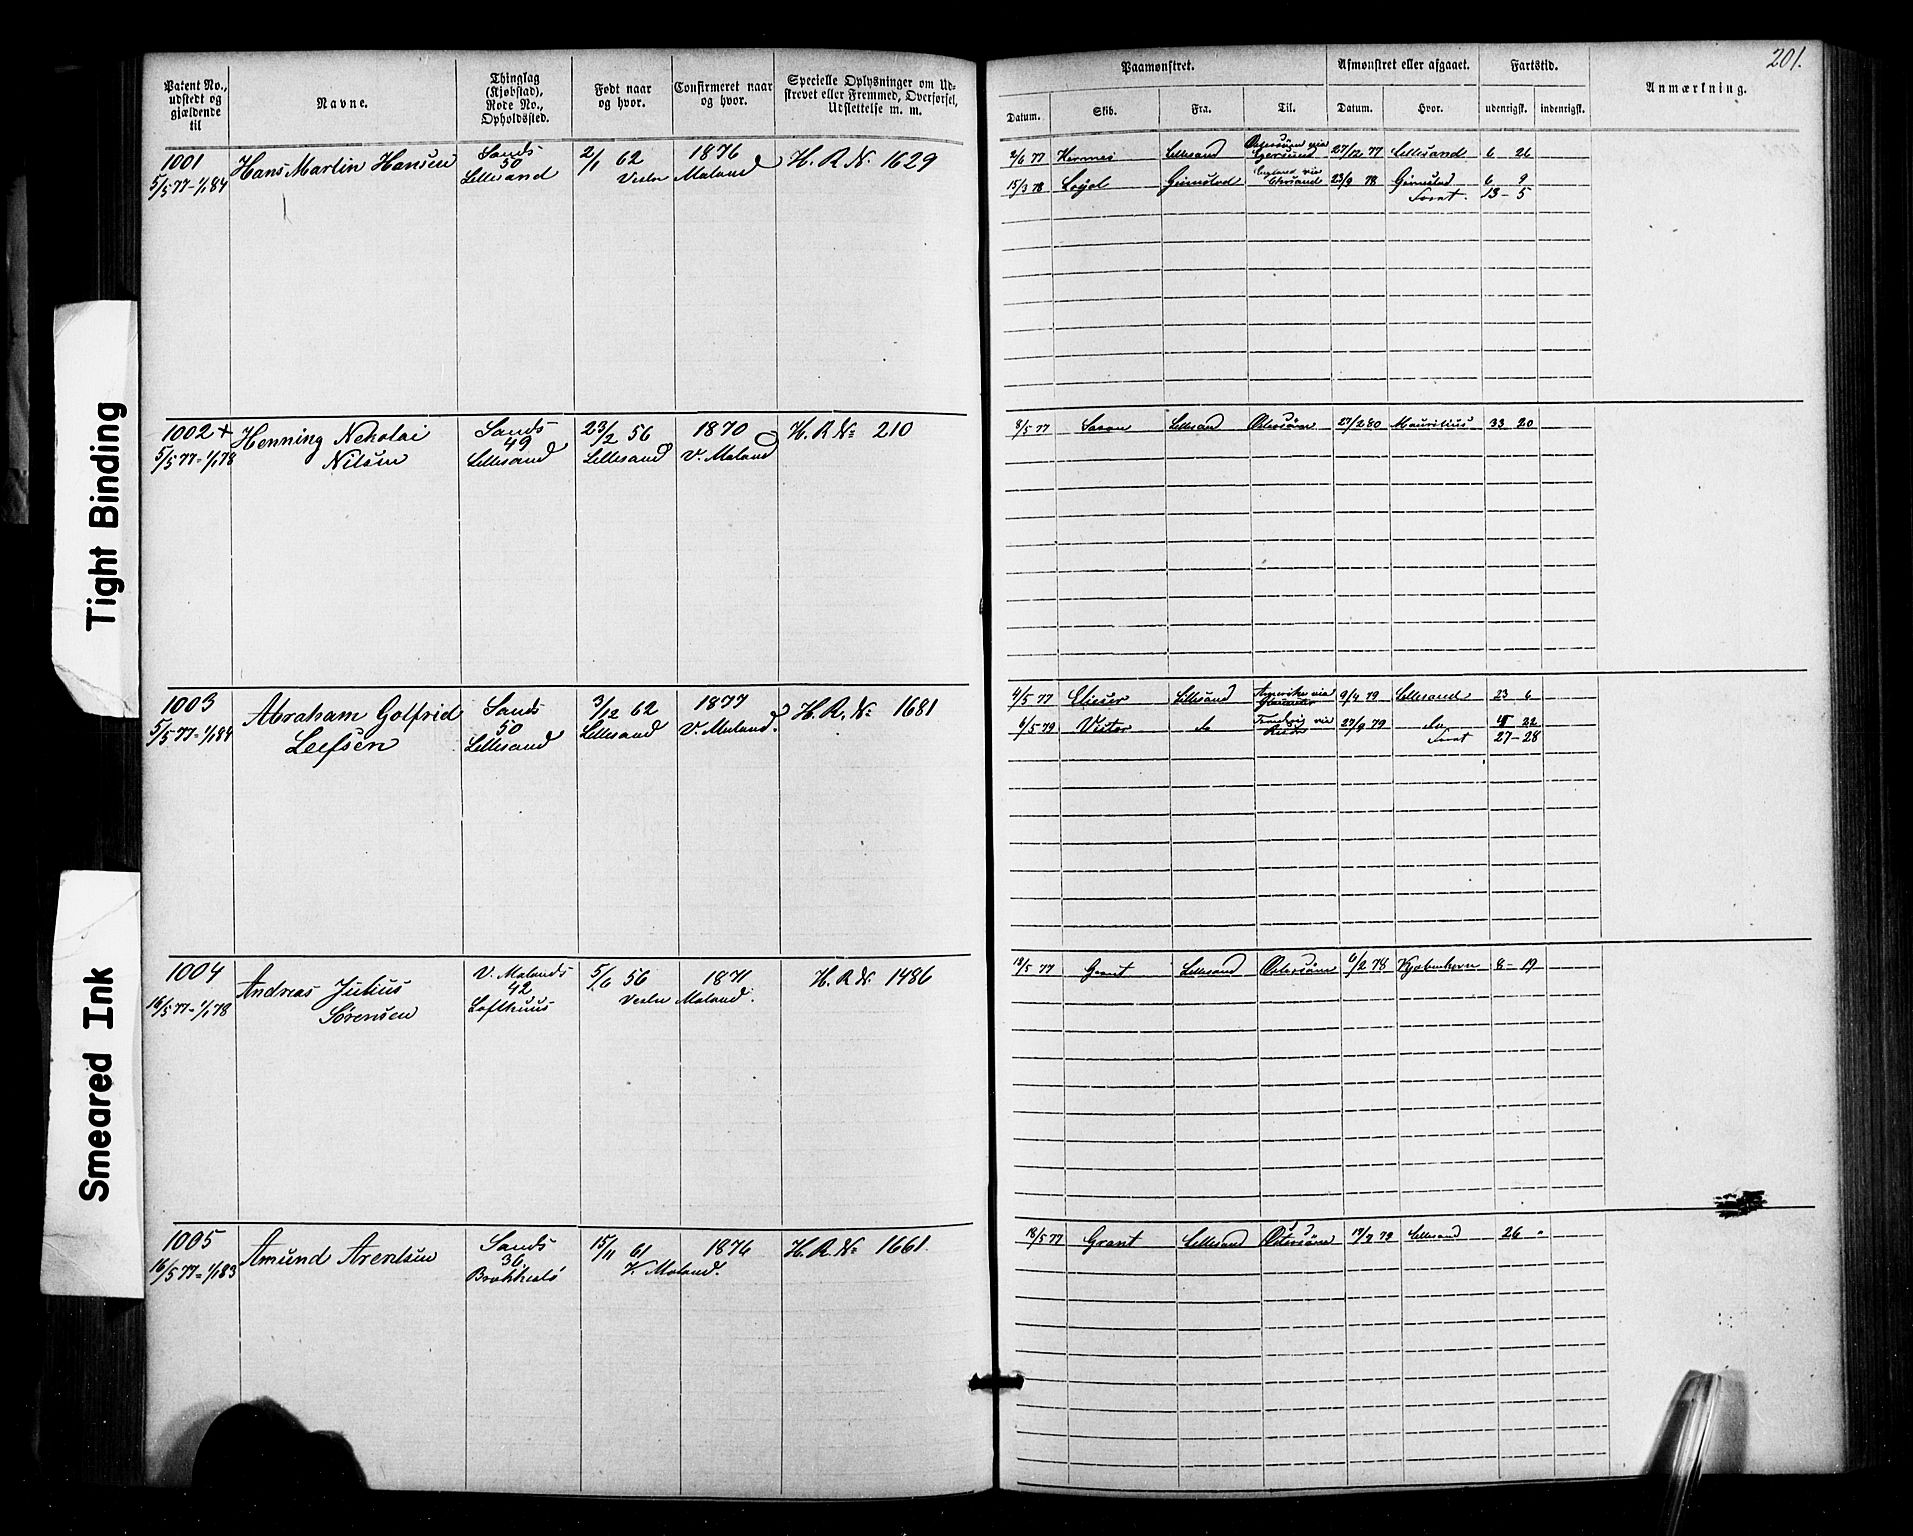 201.
Patent No., udstedt og gjældende til
Navne.
Thinglag (Kjøbstad), Rode No., Opholdssted.
Født naar og hvor.
Confirmeret naar og hvor.
Specielle Oplysninger om Udskrevet eller Fremmed, Overførsel, Udslettelse m. m.
Paamønstret.
Afmønstret eller afgaaet.
Fartstid.
Anmærkning.
Datum. Skib. Fra. Til. Datum. Hvor. udenrigsk. indenrigsk.
1001 Hans Martin Hansen Sands 50 Lillesand 2/1 62 1876 H. R. No. 1629
5/5 77 - 1/1 84 Vestre Moland
2/6 77 Hermes Lillesand Østersøen via 27/12 77 Lillesand 6 26
15/3 78 Grimstad England via 23/9 78 Grimstad 6 9
13 - 5
1002 + Henning Nekolai Nilsen Sands 49 Lillesand 23/2 56 Lillesand 1870 V. Moland H. R. No. 210
5/5 77 - 1/1 78
8/5 77 Lillesand Østersøen 27/2 80 Mauritius 33 20
1003 Abraham Gotfried Leefsen Sands 50 Lillesand 3/12 62 Lillesand 1877 V. Moland. H. R. No. 1681
5/5 77 - 1/1 84
4/5 77 Elieser Lillesand Amerika via 9/4 79 Lillesand 23 6
6/5 79 Victor do via 27/9 79 do 4 22
27 - 28
1004 Andreas Julius Sørensen V. Molands 42 Lofthuus 5/6 56 1871 H. R. No. 1486
16/5 77 - 1/1 78 Vestre Moland.
18/5 77 Grant Lillesand Østersøen 6/2 78 Kjøbenhavn 8 - 19
1005 Amund Arentsen Sands 36 Brækkestø 15/11 61 1876 H. R. No. 1661.
16/5 77 - 1/1 83 V. Moland.
18/5 77 Grant Lillesand Østersøen Lillesand 26 "
Tight Binding
Smeared Ink